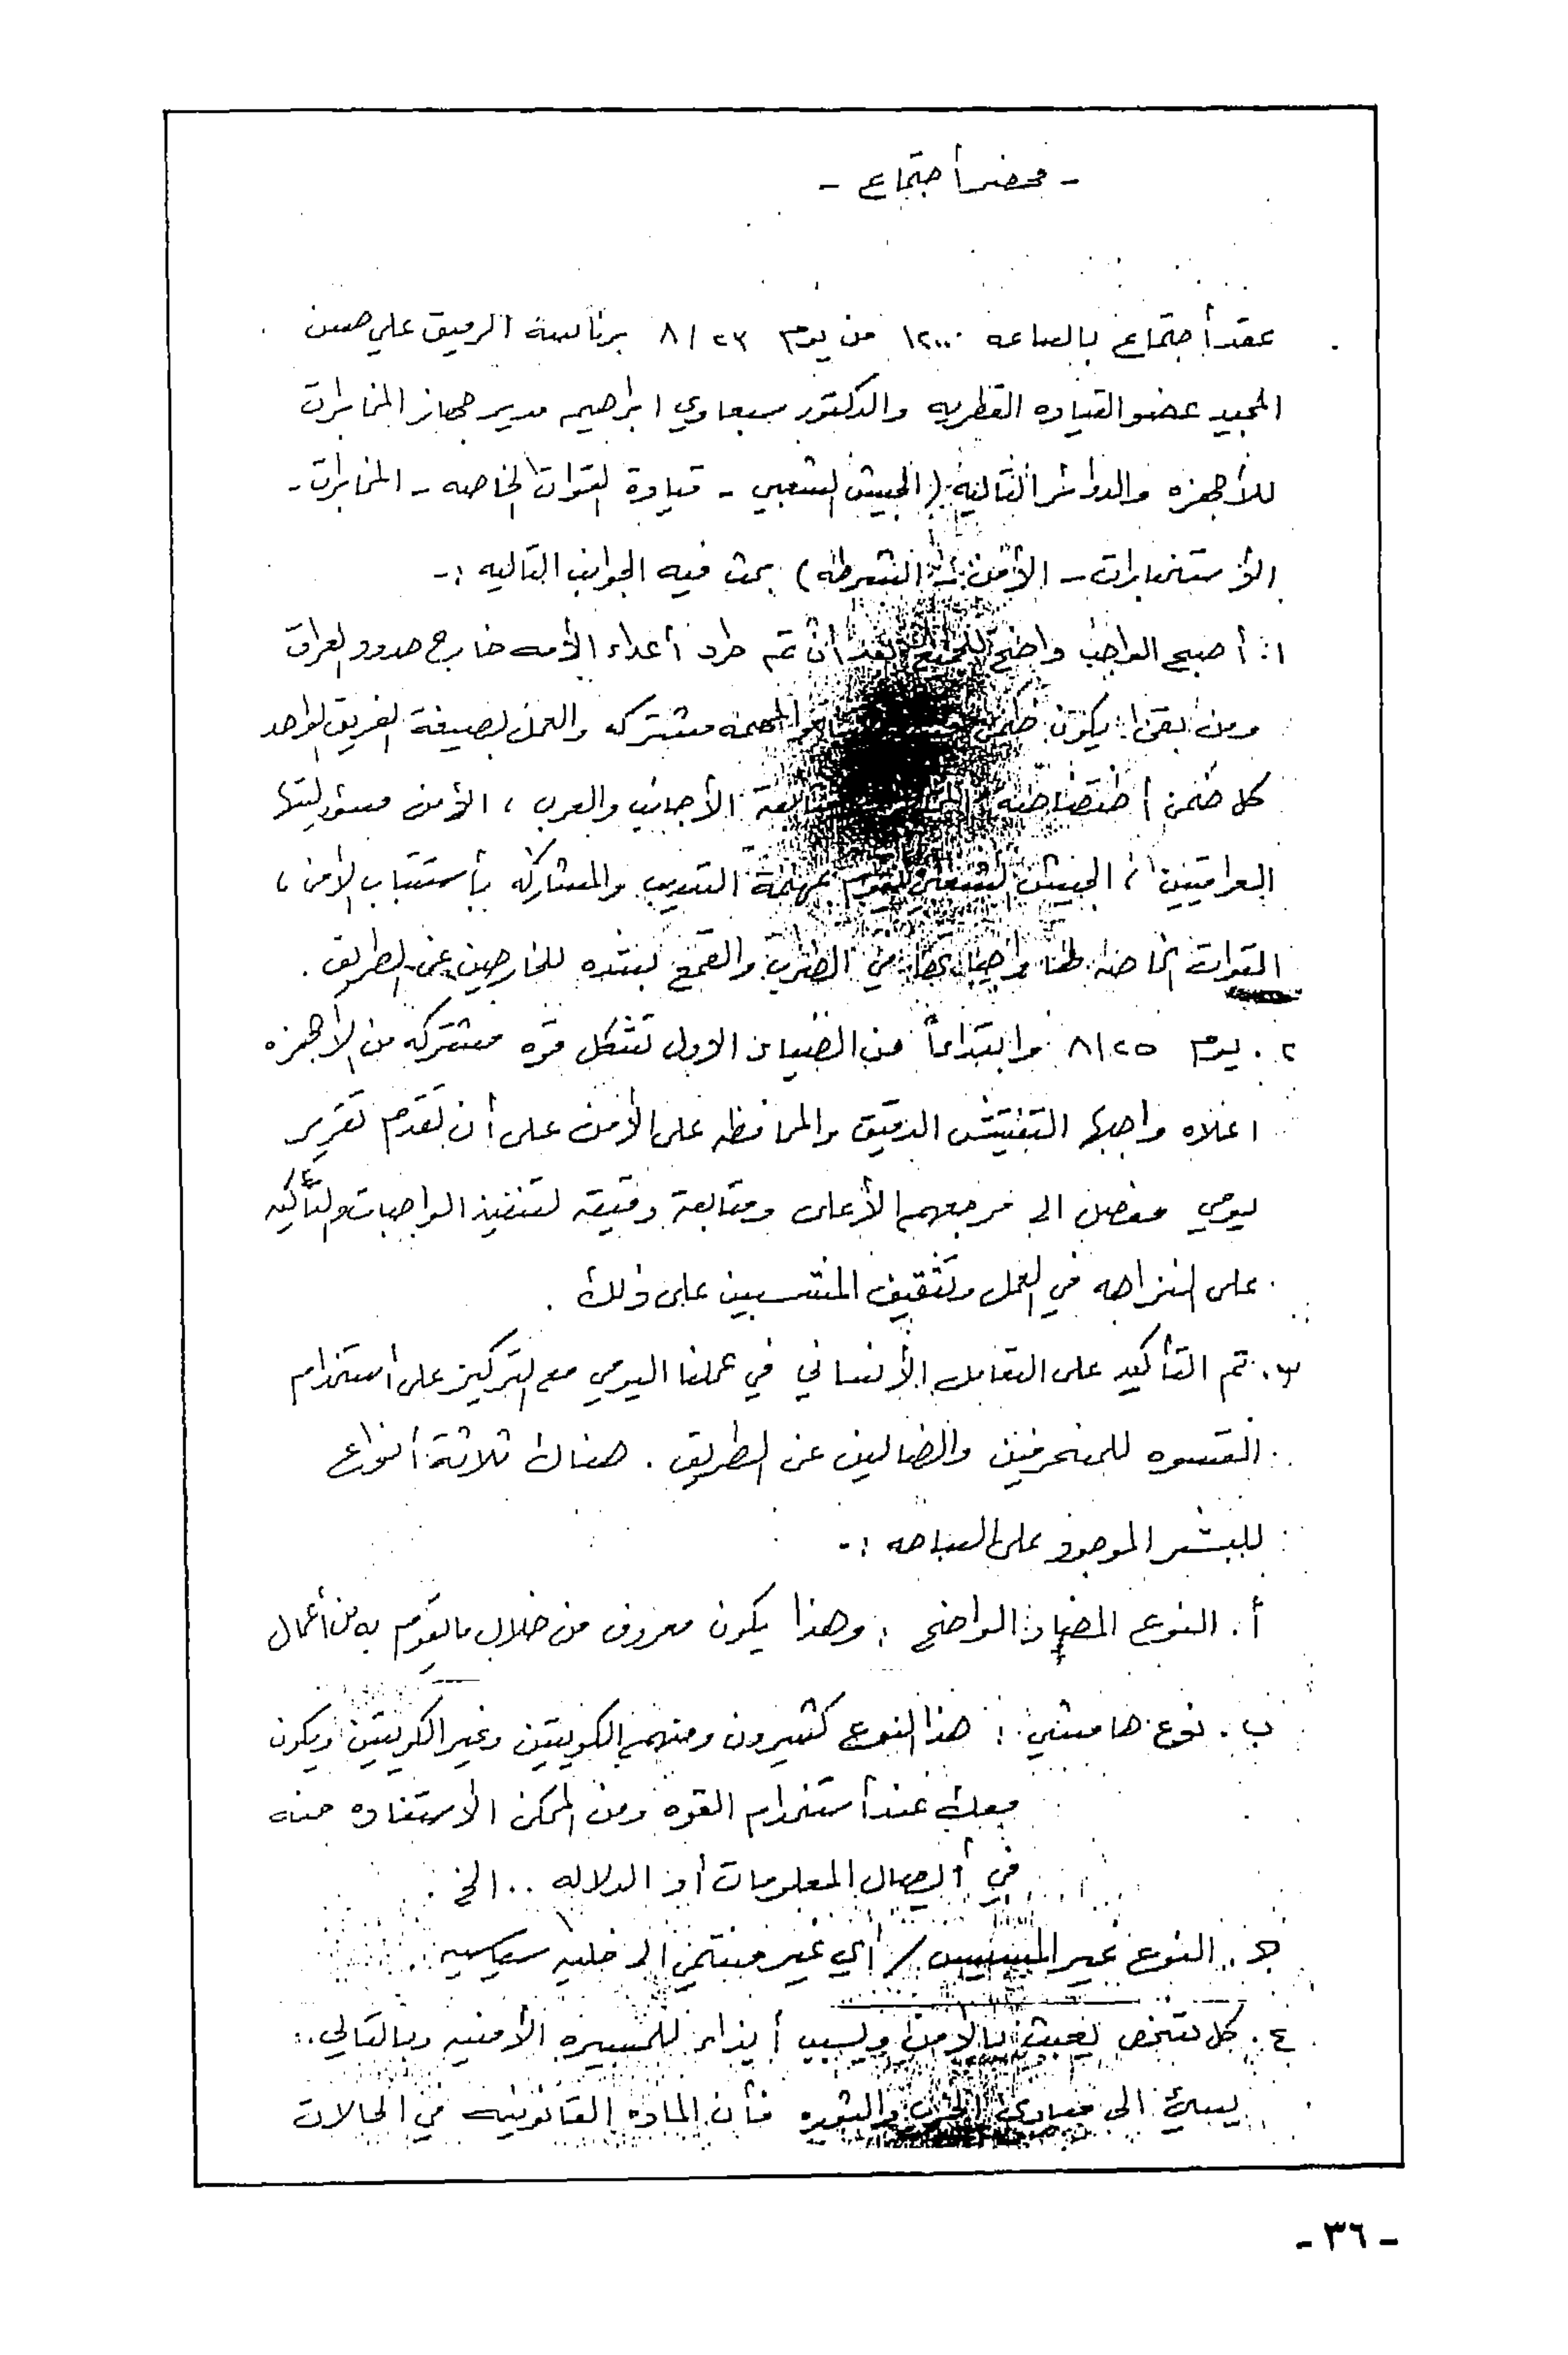 - محضر أجتماع -
عقد أجتماع بالساعه ١٢٠٠ من يوم ٨/٢٣ برئاسة الرفيق علي حسن
المجيد عضو القياده القطريه والدكتور سبعاوي ابراهيم مدير جهاز المخابرات
للأجهزه والدوائر التاليه (الجيش الشعبي - قيادة القوات الخاصه - المخابرات -
الأستخبارات - الأمن - الشرطه) بحث فيه الجوانب التاليه :-
١. أصبح الواجب واضح للجميع بعد أن تم طرد أعداء الأمه خارج حدود العراق
ومن بقى يكون ضمن والمهمه مشتركه والعمل بصيغة الفريق الواحد
كل ضمن أختصاصه متابعة الأجانب والعرب ، الأمن مسؤوليتها
العراقيين ، الجيش الشعبي يقوم بمهمة التدريب والمشاركه بأستتباب الأمن ،
القوات الخاصه لها واجبات خاصه في الضرب والقمع بشده للخارجين عن الطريق .
٢. يوم ٨/٢٥ وابتداءاً من الضياء الاول تشكل قوه مشتركه من الأجهزه
اعلاه واجبها التفتيش الدقيق والمحافظه على الأمن على أن تقدم تقرير
يومي مفصل الى مرجعهم الأعلى ومتابعة دقيقه لتنفيذ الواجبات والتأكيد
على النزاهه في العمل وتثقيف المنتسبين على ذلك .
٣. تم التأكيد على التعامل الأنساني في عملنا اليومي مع التركيز على استخدام
القسوه للمنحرفين والضالين عن الطريق . هناك ثلاثة أنواع
للبشر الموجود على الساحه :-
أ. النوع المضاد الواضح : وهذا يكون معروف من خلال مايقوم به من أعمال
ب. نوع هامشي : هذا النوع كثيرون ومنهم الكويتين وغير الكويتين ويكون
معك عند أستخدام القوه ومن الممكن الاستفاده منه
في أيصال المعلومات أو الدلاله .. الخ .
جـ. النوع غير المسيس / أي غير منتمي الى خليه سياسيه .
٤. كل شخص يعبث بالأمن ويسبب أيذاء للمسيره الأمنيه وبالتالي
يسيئ الى مبادئ الحزب والثوره فأن الماده القانونيه في الحالات
- ٣٦ -